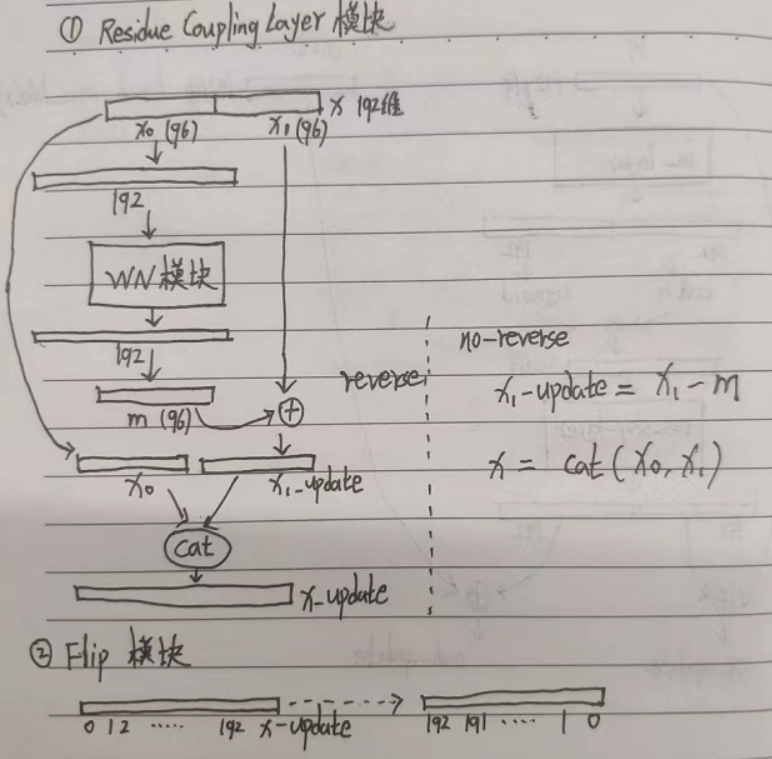 ① Residue Coupling Layer 模块
x 192维
x0 (96) x1 (96)
192
WN 模块
192
m (96) +
x0 x1-update
cat
x-update
reverse
no-reverse
x1-update = x1 - m
x = cat (x0, x1)
② Flip 模块
0 1 2 ..... 192 x-update 192 191 .... 1 0